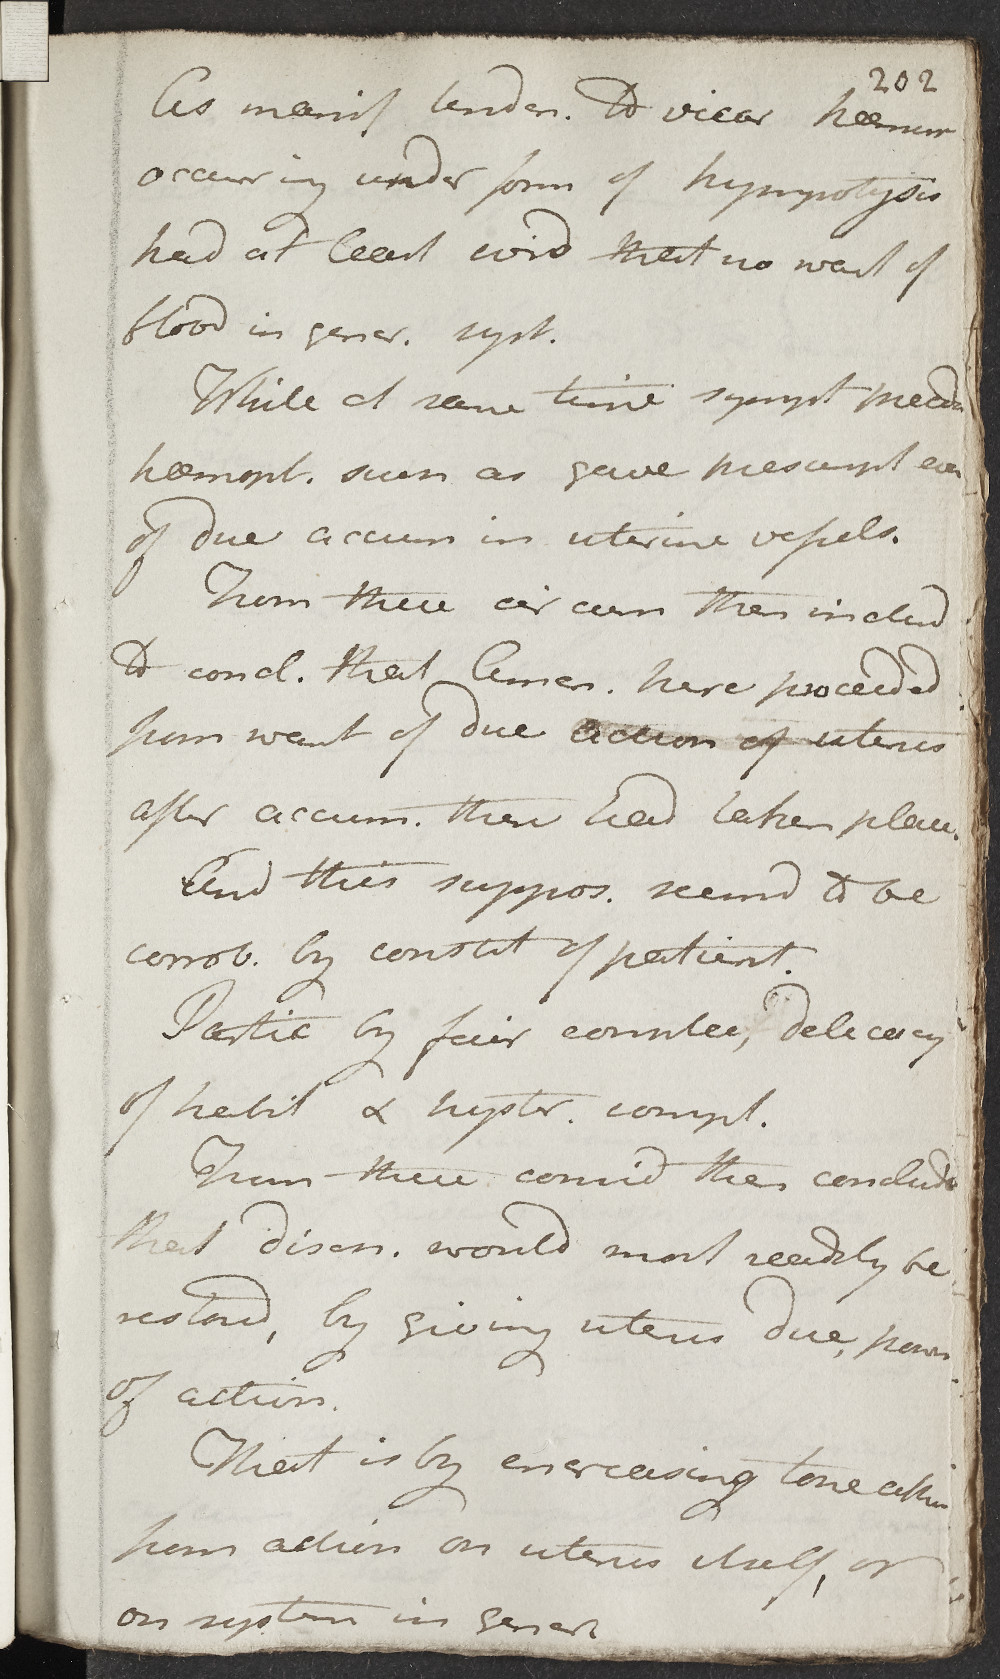 202
As manif tenden. to vicar haemorr
occurring under form of hæmoptysis
had at least evid that no want of
blood in gener. syst.
While at same time sympt preced
hæmopt. such as gave presumpt even
of due accum in uterine vessels.
From these circum then inclind
to concl. that Amen. here proceeded
from want of due action of uterus
after accum. there had taken place.
And this suppos. seemd to be
corrob. by constit of patient.
Partic by fair complex, delicacy
of habit & hyster. compl.
From these consid then conclude
that disch. would most readily be
restord, by giving uterus due, power
of action.
That is by encreasing tone either
from action on uterus itself, or
on system in gener